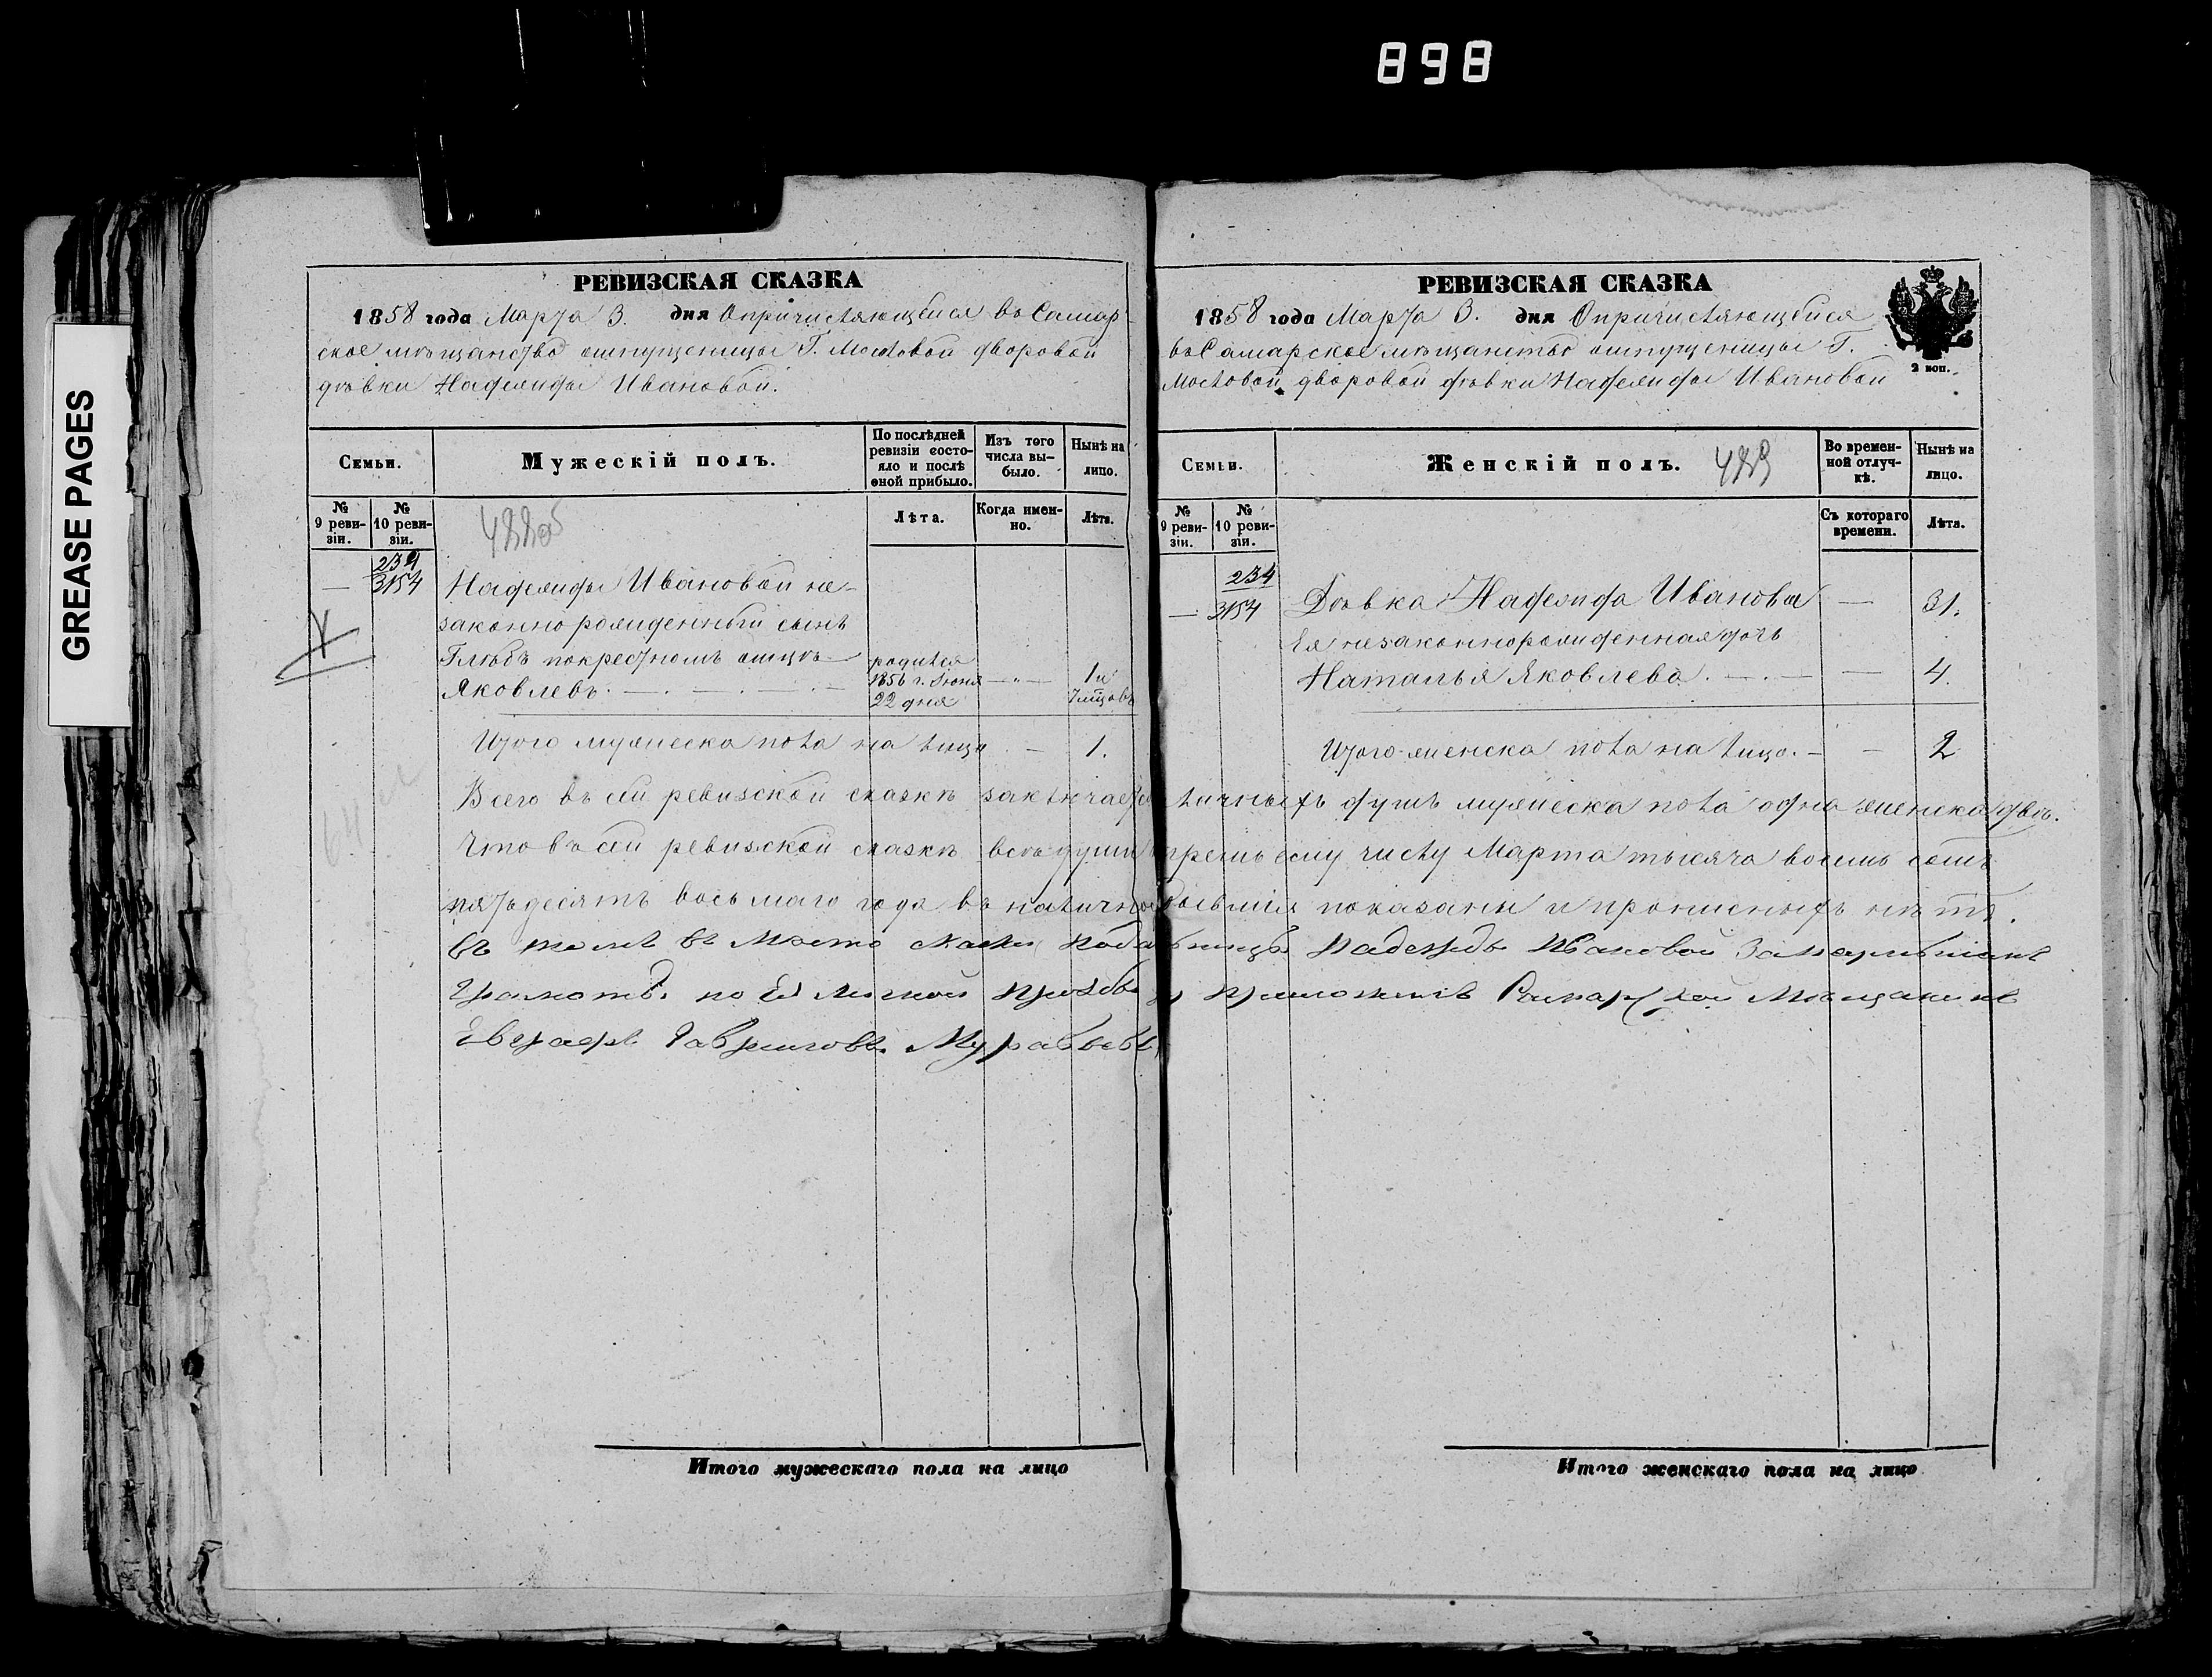 898
GREASE PAGES
РЕВИЗСКАЯ СКАЗКА
1858 года Марта 3. дня О причисляющейся въ Самар-
ское мѣщанство отпущеницы Г. Мосоловой дворовой
дѣвки Надежды Ивановой.
Семьи.
Мужескій полъ.
По послѣдней ревизіи состояло и послѣ оной прибыло.
Изъ того числа выбыло.
Нынѣ на лицо.
№ 9 ревизіи.
№ 10 ревизіи.
Лѣта.
Когда именно.
Лѣта.
488об
234
3154
Надежды Ивановой не-
законно рожденный сынъ
Глѣбъ по крестномъ отцѣ
Яковлевъ.
родился
1856 г. Іюня
22 дня
1 и
7 мѣсцовъ
Итого мужеска пола на лицо — 1.
РЕВИЗСКАЯ СКАЗКА
1858 года Марта 3. дня О причисляющейся
въ Самарское мѣщанство отпущеницы Г.
Мосоловой дворовой дѣвки Надежды Ивановой
2 коп.
Семьи.
Женскій полъ.
489
Во временной отлучкѣ.
Нынѣ на лицо.
№ 9 ревизіи.
№ 10 ревизіи.
Съ котораго времени.
Лѣта.
234
3154
Дѣвка Надежда Иванова — 31.
Ея незаконнорожденная дочь
Наталья Яковлева. — 4.
Итого женска пола на лицо. — 2
Всего въ сей ревизской сказкѣ заключается личныхъ душъ мужеска пола одна женска двѣ.
Что въ сей ревизской сказкѣ всѣ души третьему числу Марта тысяча восемь сотъ
пятьдесятъ восьмаго года въ наличности бывшія показаны и прописныхъ нѣтъ.
Въ томъ въ мѣсто Надежды Ивановой
грамотѣ по Ея личной прозьбѣ Самарской Мѣщанинъ
Евграфъ Гавриловъ Муравьевъ
Итого мужескаго пола на лицо
Итого женскаго пола на лицо